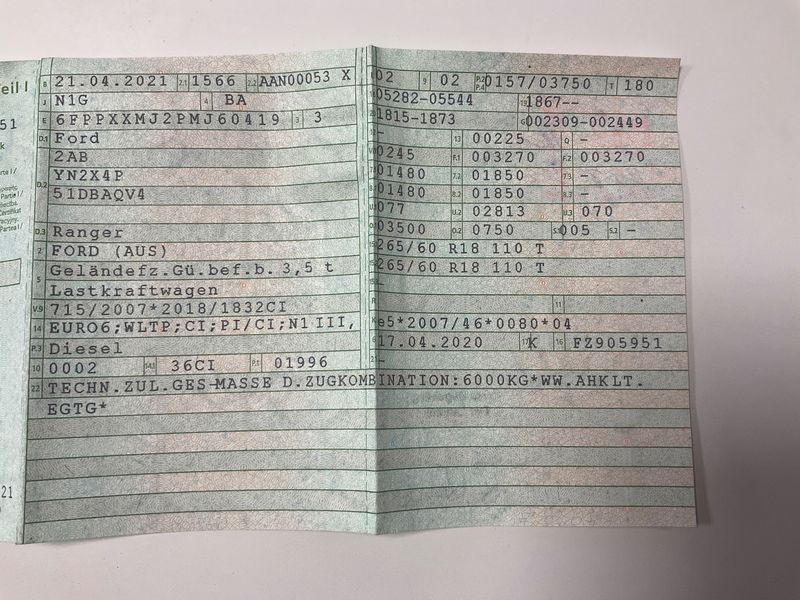 Teil I
B 21.04.2021 2.1 1566 2.2 AAN00053 X
J N1G 4 BA
E 6FPPXXMJ2PMJ60419 3 3
D.1 Ford
2AB
D.2 YN2X4P
51DBAQV4
D.3 Ranger
2 FORD (AUS)
5 Geländefz.Gü.bef.b. 3,5 t
Lastkraftwagen
V.9 715/2007*2018/1832CI
14 EURO6;WLTP;CI;PI/CI;N1III,
P.3 Diesel
10 0002 14.1 36CI P.1 01996
22 TECHN.ZUL.GES-MASSE D.ZUGKOMBINATION:6000KG*WW.AHKLT.
EGTG*
51
21
02 9 02 P.2 P.4 0157/03750 T 180
05282-05544 1867--
1815-1873 G 002309-002449
- 13 00225 Q -
0245 F.1 003270 F.2 003270
01480 7.2 01850 7.3 -
01480 8.2 01850 8.3 -
077 U.2 02813 U.3 070
03500 O.2 0750 S.1 005 S.2 -
265/60 R18 110 T
265/60 R18 110 T
R 11
K e5*2007/46*0080*04
6 17.04.2020 17 K 16 FZ905951
21 -